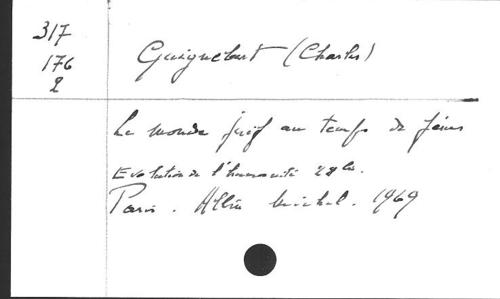 317
176
2
Guignebert (Charles)
Le monde juif au temps de Jésus
Evolution de l'humanité 29 bis.
Paris. Albin Michel. 1969